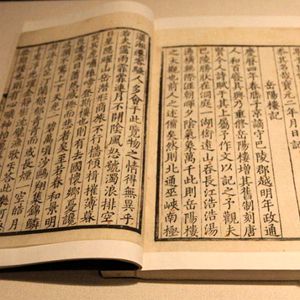 哉寶元二年月日記
岳陽樓記
慶曆四年春滕子京謫守巴陵郡越明年政通
人和百廢具興乃重脩岳陽樓增其舊制刻唐
賢今人詩賦于其上屬予作文以記之予觀夫
巴陵勝狀在洞庭一湖銜遠山吞長江浩浩湯
湯橫無際涯朝暉夕陰氣象萬千此則岳陽樓
之大觀也前人之述備矣然則北通巫峽南極
瀟湘遷客騷人多會于此覽物之情得無異乎
若夫霪雨霏霏連月不開陰風怒號濁浪排空
日星隱耀山岳潛形商旅不行檣傾楫摧薄暮
冥冥虎嘯猿啼登斯樓也則有去國懷鄉憂讒
畏譏滿目蕭然感極而悲者矣至若春和景明
波瀾不驚上下天光一碧萬頃沙鷗翔集錦鱗
一空皓月
漁歌